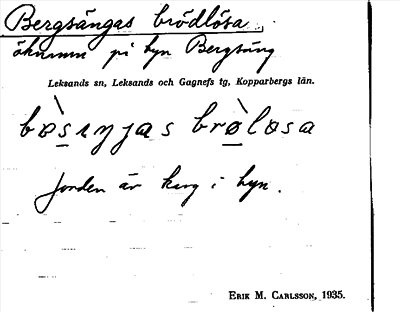 Bergsängas brödlösa
öknamn på byn Bergsäng
Leksands sn, Leksands och Gagnefs tg, Kopparbergs län.
Jorden är karg i byn.
ERIK M. CARLSSON, 1935.